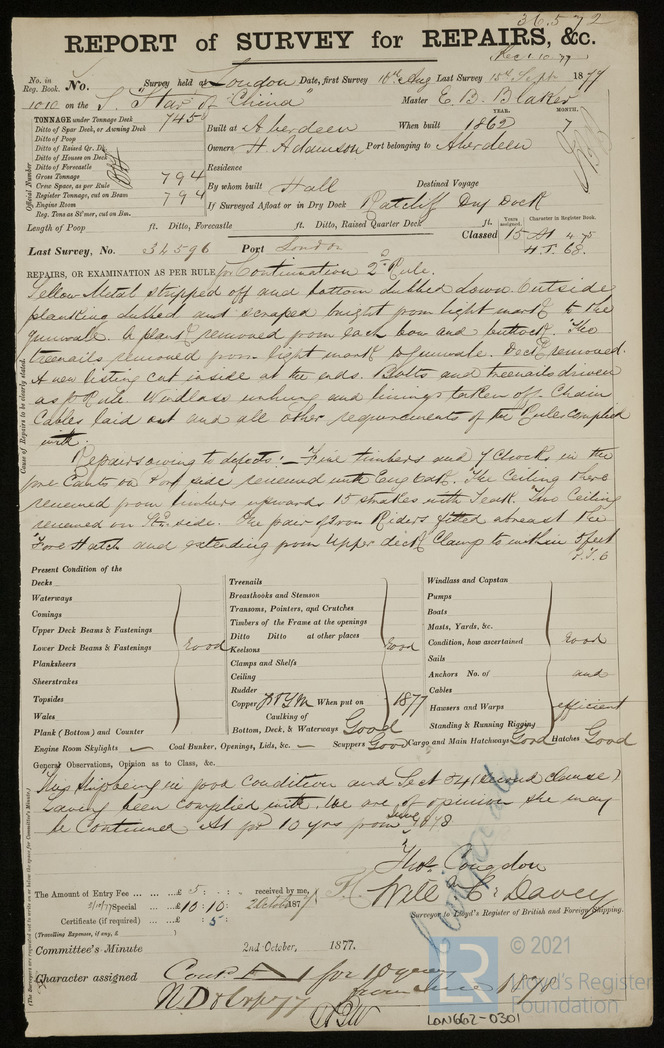 36,572
REPORT of SURVEY for REPAIRS, &c.
Rec 1.10.77
No. in Reg. Book. No. Survey held at London Date, first Survey 10th Aug Last Survey 15th Sept 1877
1010 on the S. "Star of China" Master E. B. Blaker
TONNAGE under Tonnage Deck 745
Ditto of Spar Deck, or Awning Deck
Ditto of Poop
Ditto of Raised Qr. Dk.
Ditto of Houses on Deck
Ditto of Forecastle
Gross Tonnage 794
Crew Space, as per Rule
Register Tonnage, cut on Beam 794
Engine Room
Reg. Tons as St'mer, cut on Bm.
Official Number
Built at Aberdeen When built YEAR. 1862 MONTH. 7
Owners H Adamson Port belonging to Aberdeen
Residence
By whom built Hall Destined Voyage
If Surveyed Afloat or in Dry Dock Ratcliff Dry Dock
Length of Poop ft. Ditto, Forecastle ft. Ditto, Raised Quarter Deck ft.
Years assigned. Character in Register Book.
Classed 15 A1 4.75
H.T. 68.
Last Survey, No. 34596 Port London
REPAIRS, OR EXAMINATION AS PER RULE, for Continuation 2d Rule.
Cause of Repairs to be clearly stated.
Yellow Metal stripped off and bottom dubbed down. Outside
planking dubbed and scraped bright from light mark to the
gunwale. A plank removed from each bow and buttock. The
treenails removed from light mark to gunwale. Deck removed.
A new listing cut inside at the ends. Bolts and treenails driven
as pr Rule. Windlass unhung and linings taken off. Chain
Cables laid out and all other requirements of the Rules complied
with.
Repairs owing to defects:— Five timbers and 7 Chocks in the
fore Cants on Port side renewed with Eng Oak. The Ceiling there
renewed from timbers upwards 15 strakes with Teak. Two Ceiling
renewed on St. side. One pair of Iron Riders fitted abreast the
Fore Hatch and extending from Upper deck Clamp to within 5 feet
P.T.O
Present Condition of the
Decks
Waterways
Comings
Upper Deck Beams & Fastenings
Lower Deck Beams & Fastenings
Planksheers
Sheerstrakes
Topsides
Wales
Plank (Bottom) and Counter
Good
Treenails
Breasthooks and Stemson
Transoms, Pointers, and Crutches
Timbers of the Frame at the openings
Ditto Ditto at other places
Keelsons
Clamps and Shelfs
Ceiling
Rudder
Good
Copper or YM When put on 1877
Caulking of Bottom, Deck, & Waterways Good
Windlass and Capstan
Pumps
Boats
Masts, Yards, &c.
Condition, how ascertained
Sails
Anchors No. of
Cables
Hawsers and Warps
Standing & Running Rigging
Good and efficient
Engine Room Skylights — Coal Bunker, Openings, Lids, &c. — Scuppers Good Cargo and Main Hatchways Good Hatches Good
General Observations, Opinion as to Class, &c.
This Ship being in good Condition and Sect 54 (second clause)
having been complied with. We are of opinion she may
be Continued A1 for 10 yrs from June 1878
Thos. Congdon
Will C. Davey
Surveyor to Lloyd's Register of British and Foreign Shipping.
The Amount of Entry Fee £ 5 : : received by me,
2/10/77 Special £ 10 : 10 : 2 October 1877
Certificate (if required) : 5 :
(Travelling Expenses, if any, £ )
Committee's Minute 2nd October, 1877.
Character assigned Cont. A1 for 10 years
from June 1878
© 2021
LR
Lloyd's Register
Foundation
LON662-0301